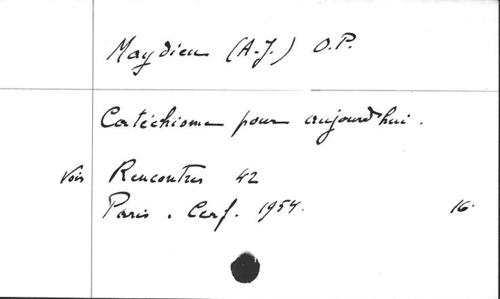 Maydieu (A-J.) O.P.
Catéchisme pour aujourd'hui.
Voir Rencontres 42
Paris. Cerf. 1954. 16.